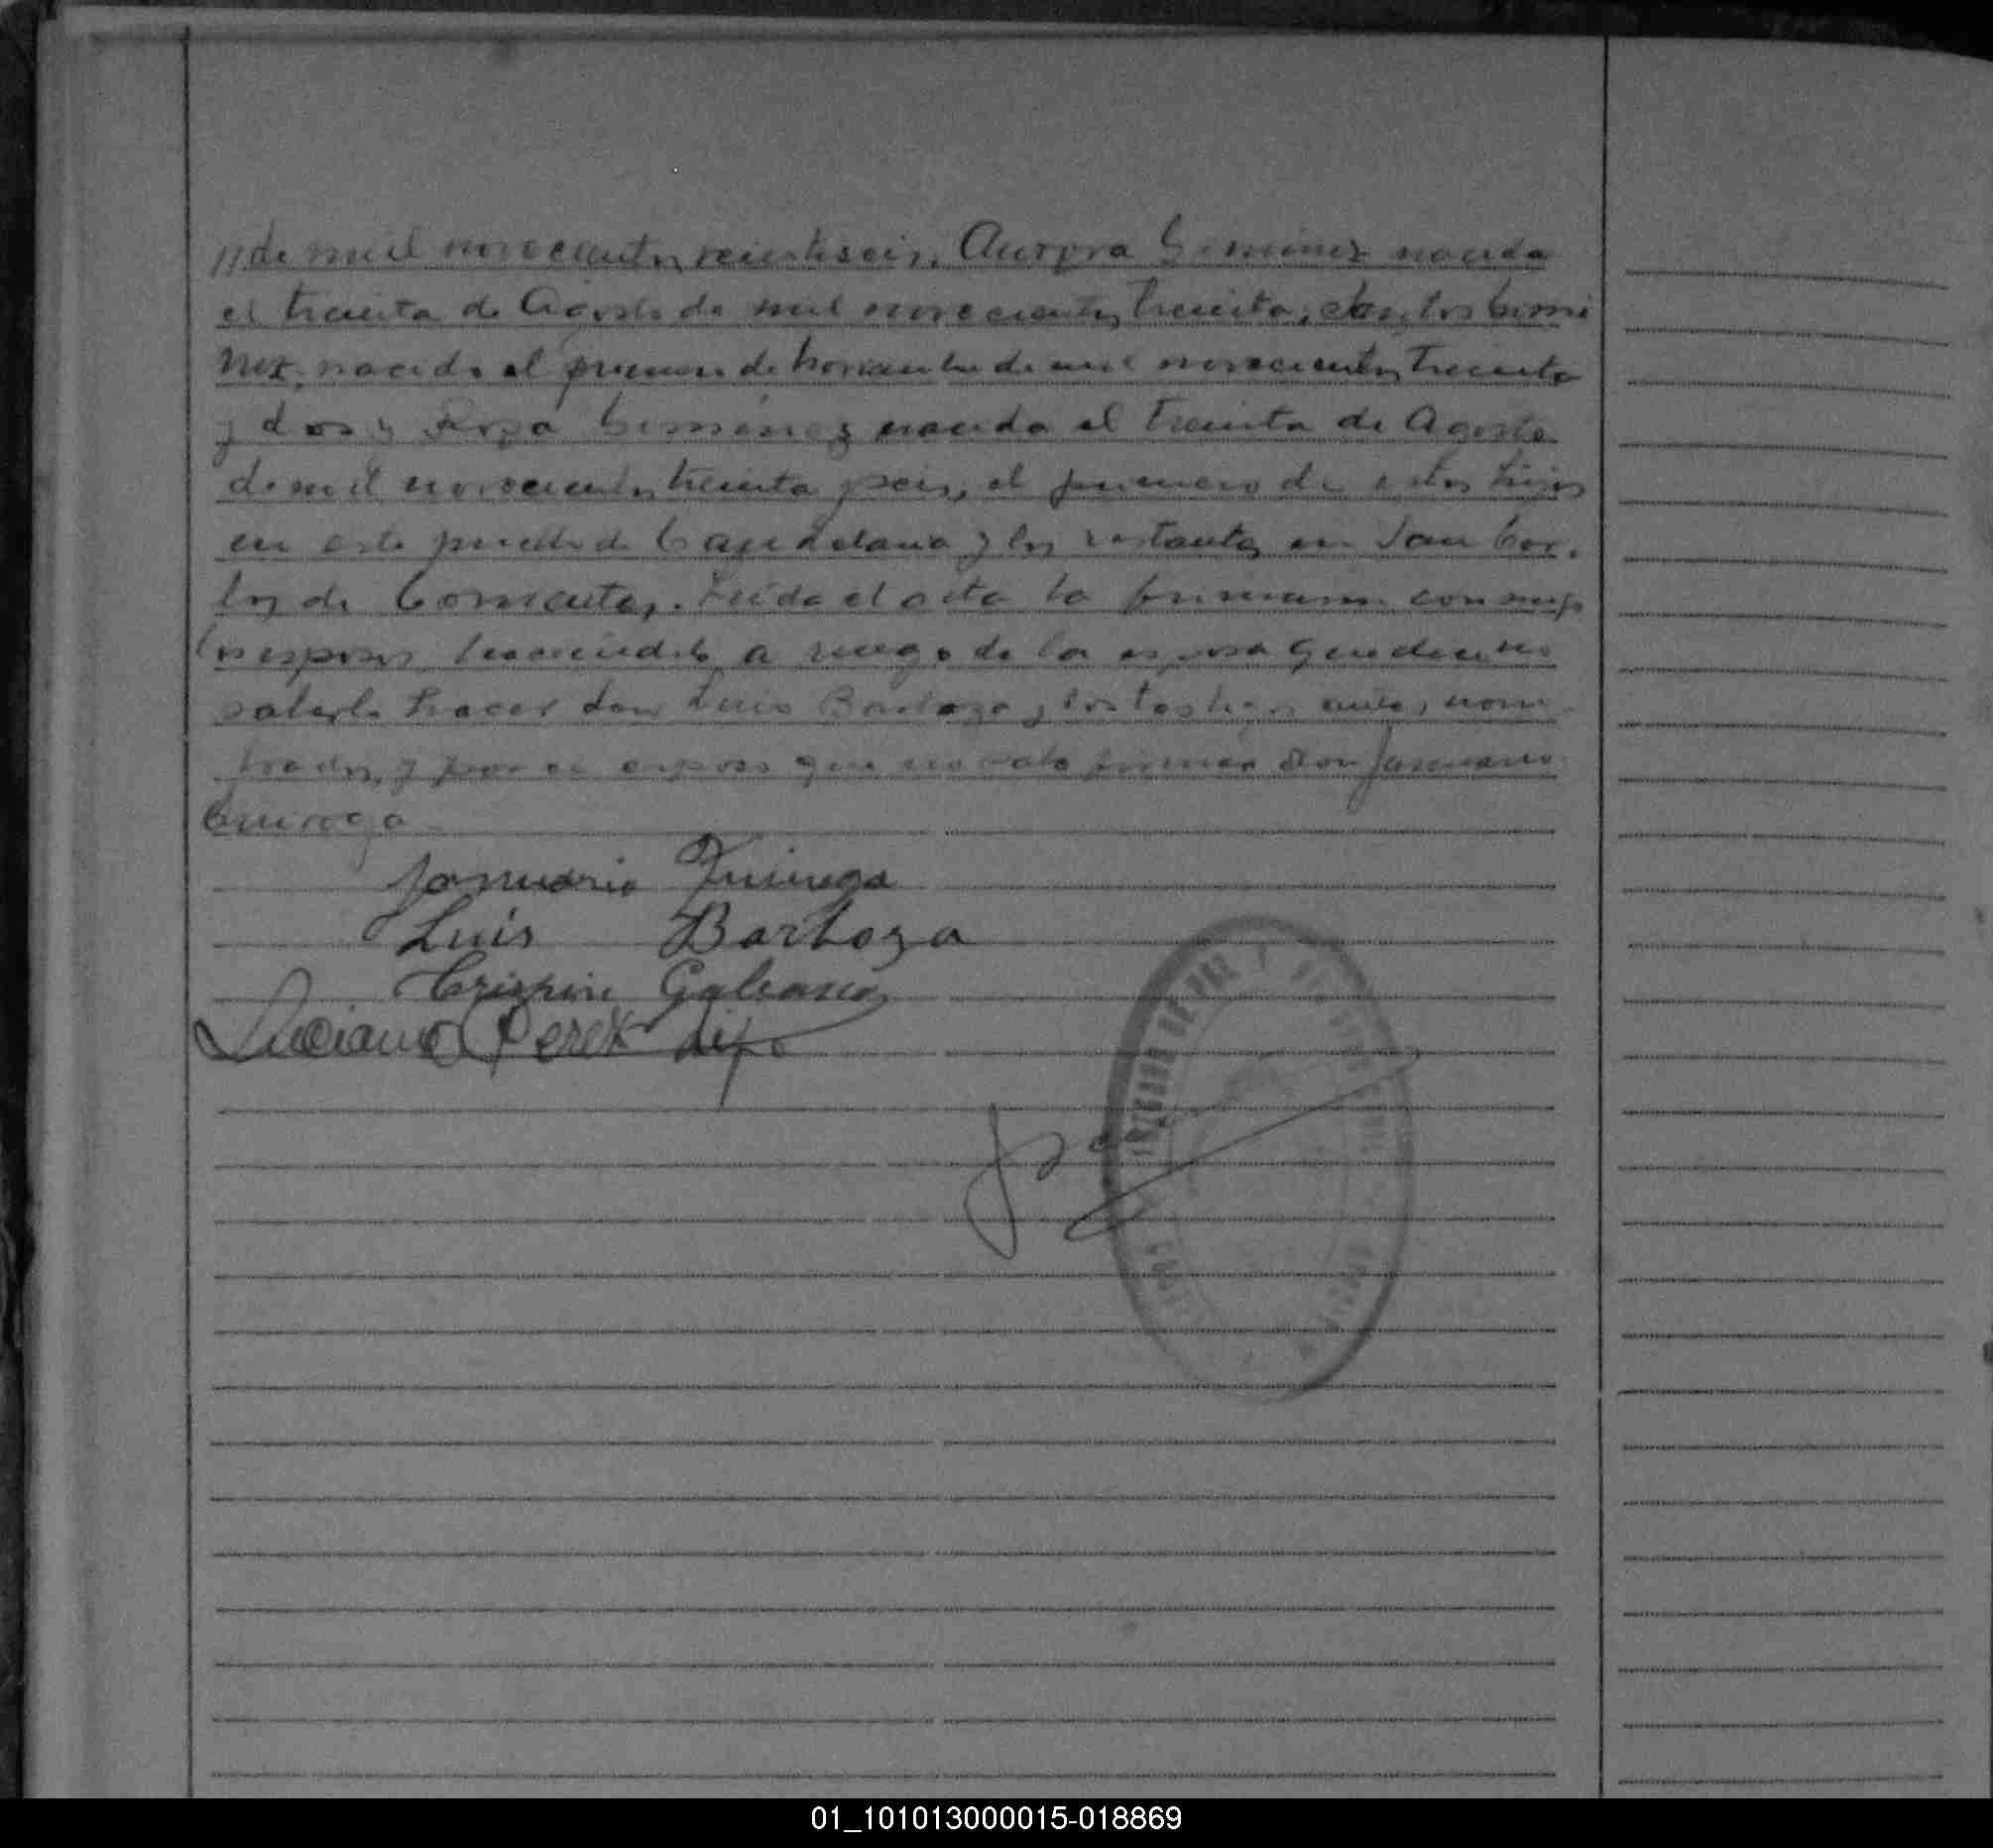 //de mil novecientos veintiseis, Aurora Gimenez nacida
el treinta de Agosto de mil novecientos treinta, Santos Gimé
nez, nacido el primero de Noviembre de mil novecientos treinta
y dos y Rosa Gimenez nacida el treinta de Agosto
de mil novecientos treinta y seis, el primero de estos hijos
en este pueblo de Candelaria y los restantes en San Car-
los de Corrientes. Leida el acta la firmaron conmigo
los esposos haciendolo a ruego de la esposa que dice no
saberlo hacer don Luis Barboza, y los testigos antes nom-
brados, y por el esposo que no sabe firmar don Januario
Quiroga
Januario Quiroga
Luis Barboza
Crispin Galeano
Luciano Perez hijo
JUZGADO DE PAZ
01_101013000015-018869